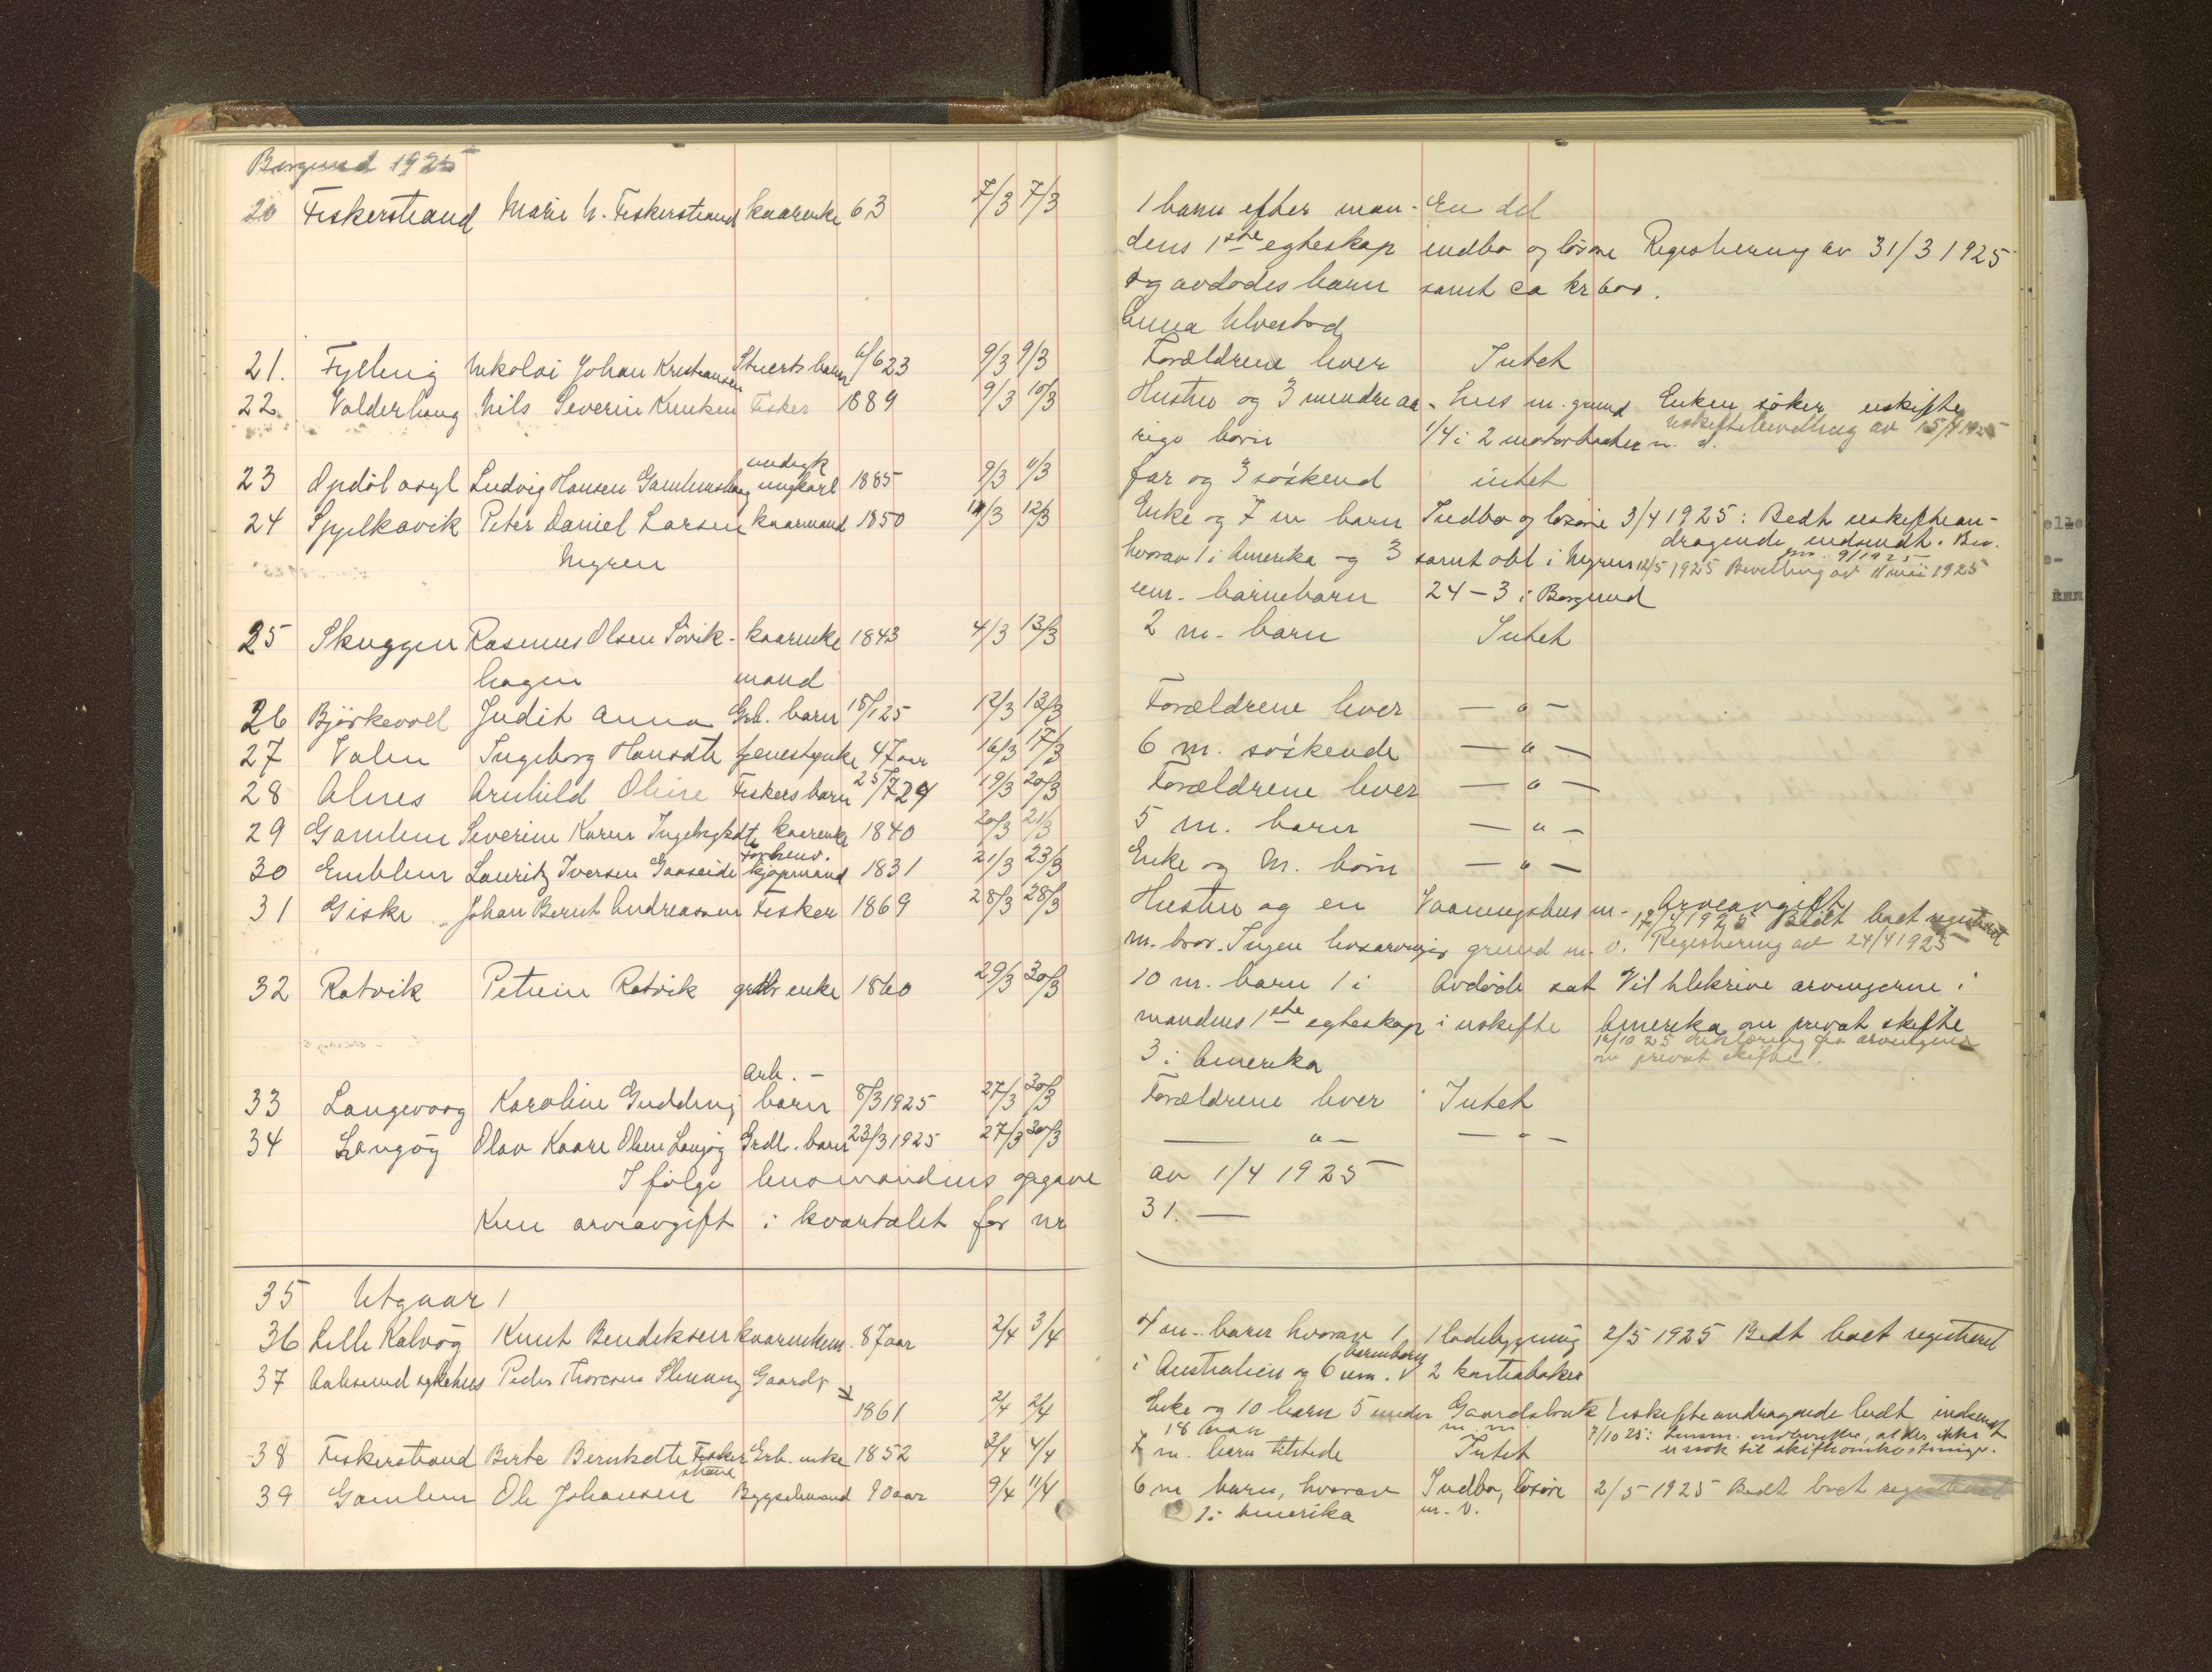 Borgund 1925
20 Fiskerstrand Marie N. Fiskerstrand kaarenke 63 7/3 7/3 1 barn efter man- En del
dens 1ste egteskap indbo og løsøre Registrering av 31/3 1925
og avdødes barn samt ca kr 600.
Anna Ulvestad
21. Fylling Nikolai Johan Kristiansen Stuerts barn 6/6 23 9/3 9/3 Forældrene lever Intet
22. Valderhaug Nils Severin Knutsen Fisker 1889 9/3 10/3 Hustru og 3 mindreaa- hus m. grund Enken søker uskifte
rige børn 1/4 i 2 motorbaater m. v. uskiftebevilling av 15/4 1925
undegk
23 Opdøl asyl Ludvig Hansen Gamlemshaug ungkarl 1885 9/3 11/3 far og 3 søskend intet
24 Spjelkavik Peter Daniel Larsen kaarmand 1850 11/3 12/3 Enke og 7 m barn Indbo og løsøre 3/4 1925: Bedt uskiftean-
dragende indsendt. Bev.
Myren hvorav 1 i Amerika og 3 samt obl i Myren 12/5 1925 Bevilling av 11 mai 1925
um. barnebarn 24-3 i Borgund
25 Skuggen Rasmus Olsen Søvik- kaarenke 1843 4/3 13/3 2 m. barn Intet
hagen mand
26 Bjørkavoll Judit Anna Grb. barn 15/1 25 12/3 13/3 Forældrene lever — " —
27 Valen Ingeborg Hansdtr tjenestepike 47 aar 16/3 17/3 6 m. søskende — " —
28 Alnes Arnhild Oline Fiskers barn 25/7 24 19/3 20/3 Forældrene lever — " —
29 Gamlem Severine Karen Ingebrigtsdtr kaarenke 1840 20/3 21/3 5 m. barn — " —
forhenv.
30 Emblem Lauritz Iversen Gaaseide kjøpmand 1831 21/3 23/3 Enke og m. børn — " —
31 Giske Johan Bernt Andreassen Fisker 1869 28/3 28/3 Hustru og en Vaaningshus m. Arveavgift
17/4 1925 Bedt boet registrert
m. bror. Ingen livsarvinger grund m. v. Registrering av 24/4 1925
32 Ratvik Petrine Ratvik grdbr enke 1860 29/3 30/3 10 m. barn 1 i Avdøde sat Vil tilskrive arvingerne i
mandens 1ste egteskap i uskifte Amerika om privat skifte
3 i Amerika 12/10 25 Erklæring fra arvingene
om privat skifte.
Arb. —
33 Langevaag Karoline Gudding barn 8/3 1925 27/3 30/3 Forældrene lever Intet
34 Langøy Olav Kaare Olsen Langøy Grdb. barn 23/3 1925 27/3 30/3 — " — — " —
I følge lensmandens opgave av 1/4 1925
Kun arveavgift i kvartalet for nr 31. —
35 Utgaar!
36 Lille Kalvøy Knut Bendiksen kaarenkem. 87 aar 2/4 3/4 4 m. barn hvorav 1 1 ladebygning 2/5 1925 Bedt boet registrert
i Australien og 6 um. barnebarn 2
37 Aalesund sykehus Peder Thoresen Slemmen Gaardbr
1861 2/4 2/4 Enke og 10 barn 5 under Gaardsbruk Uskifteandragende bedt indsendt
18 aar m. m. 7/10 25: Lensm. indberetter, at der ikke
38 Fiskerstrand Berte Berntsdtr Fiskerstrand Grb. enke 1852 3/4 4/4 7 m. barn tilstede Intet er nok til skifteomkostninger.
39 Gamlem Ole Johansen Bygselmand 90 aar 9/4 11/4 6 m barn, hvorav Indbo, løsøre 2/5 1925 Bedt boet registrert
1 i Amerika m. v.